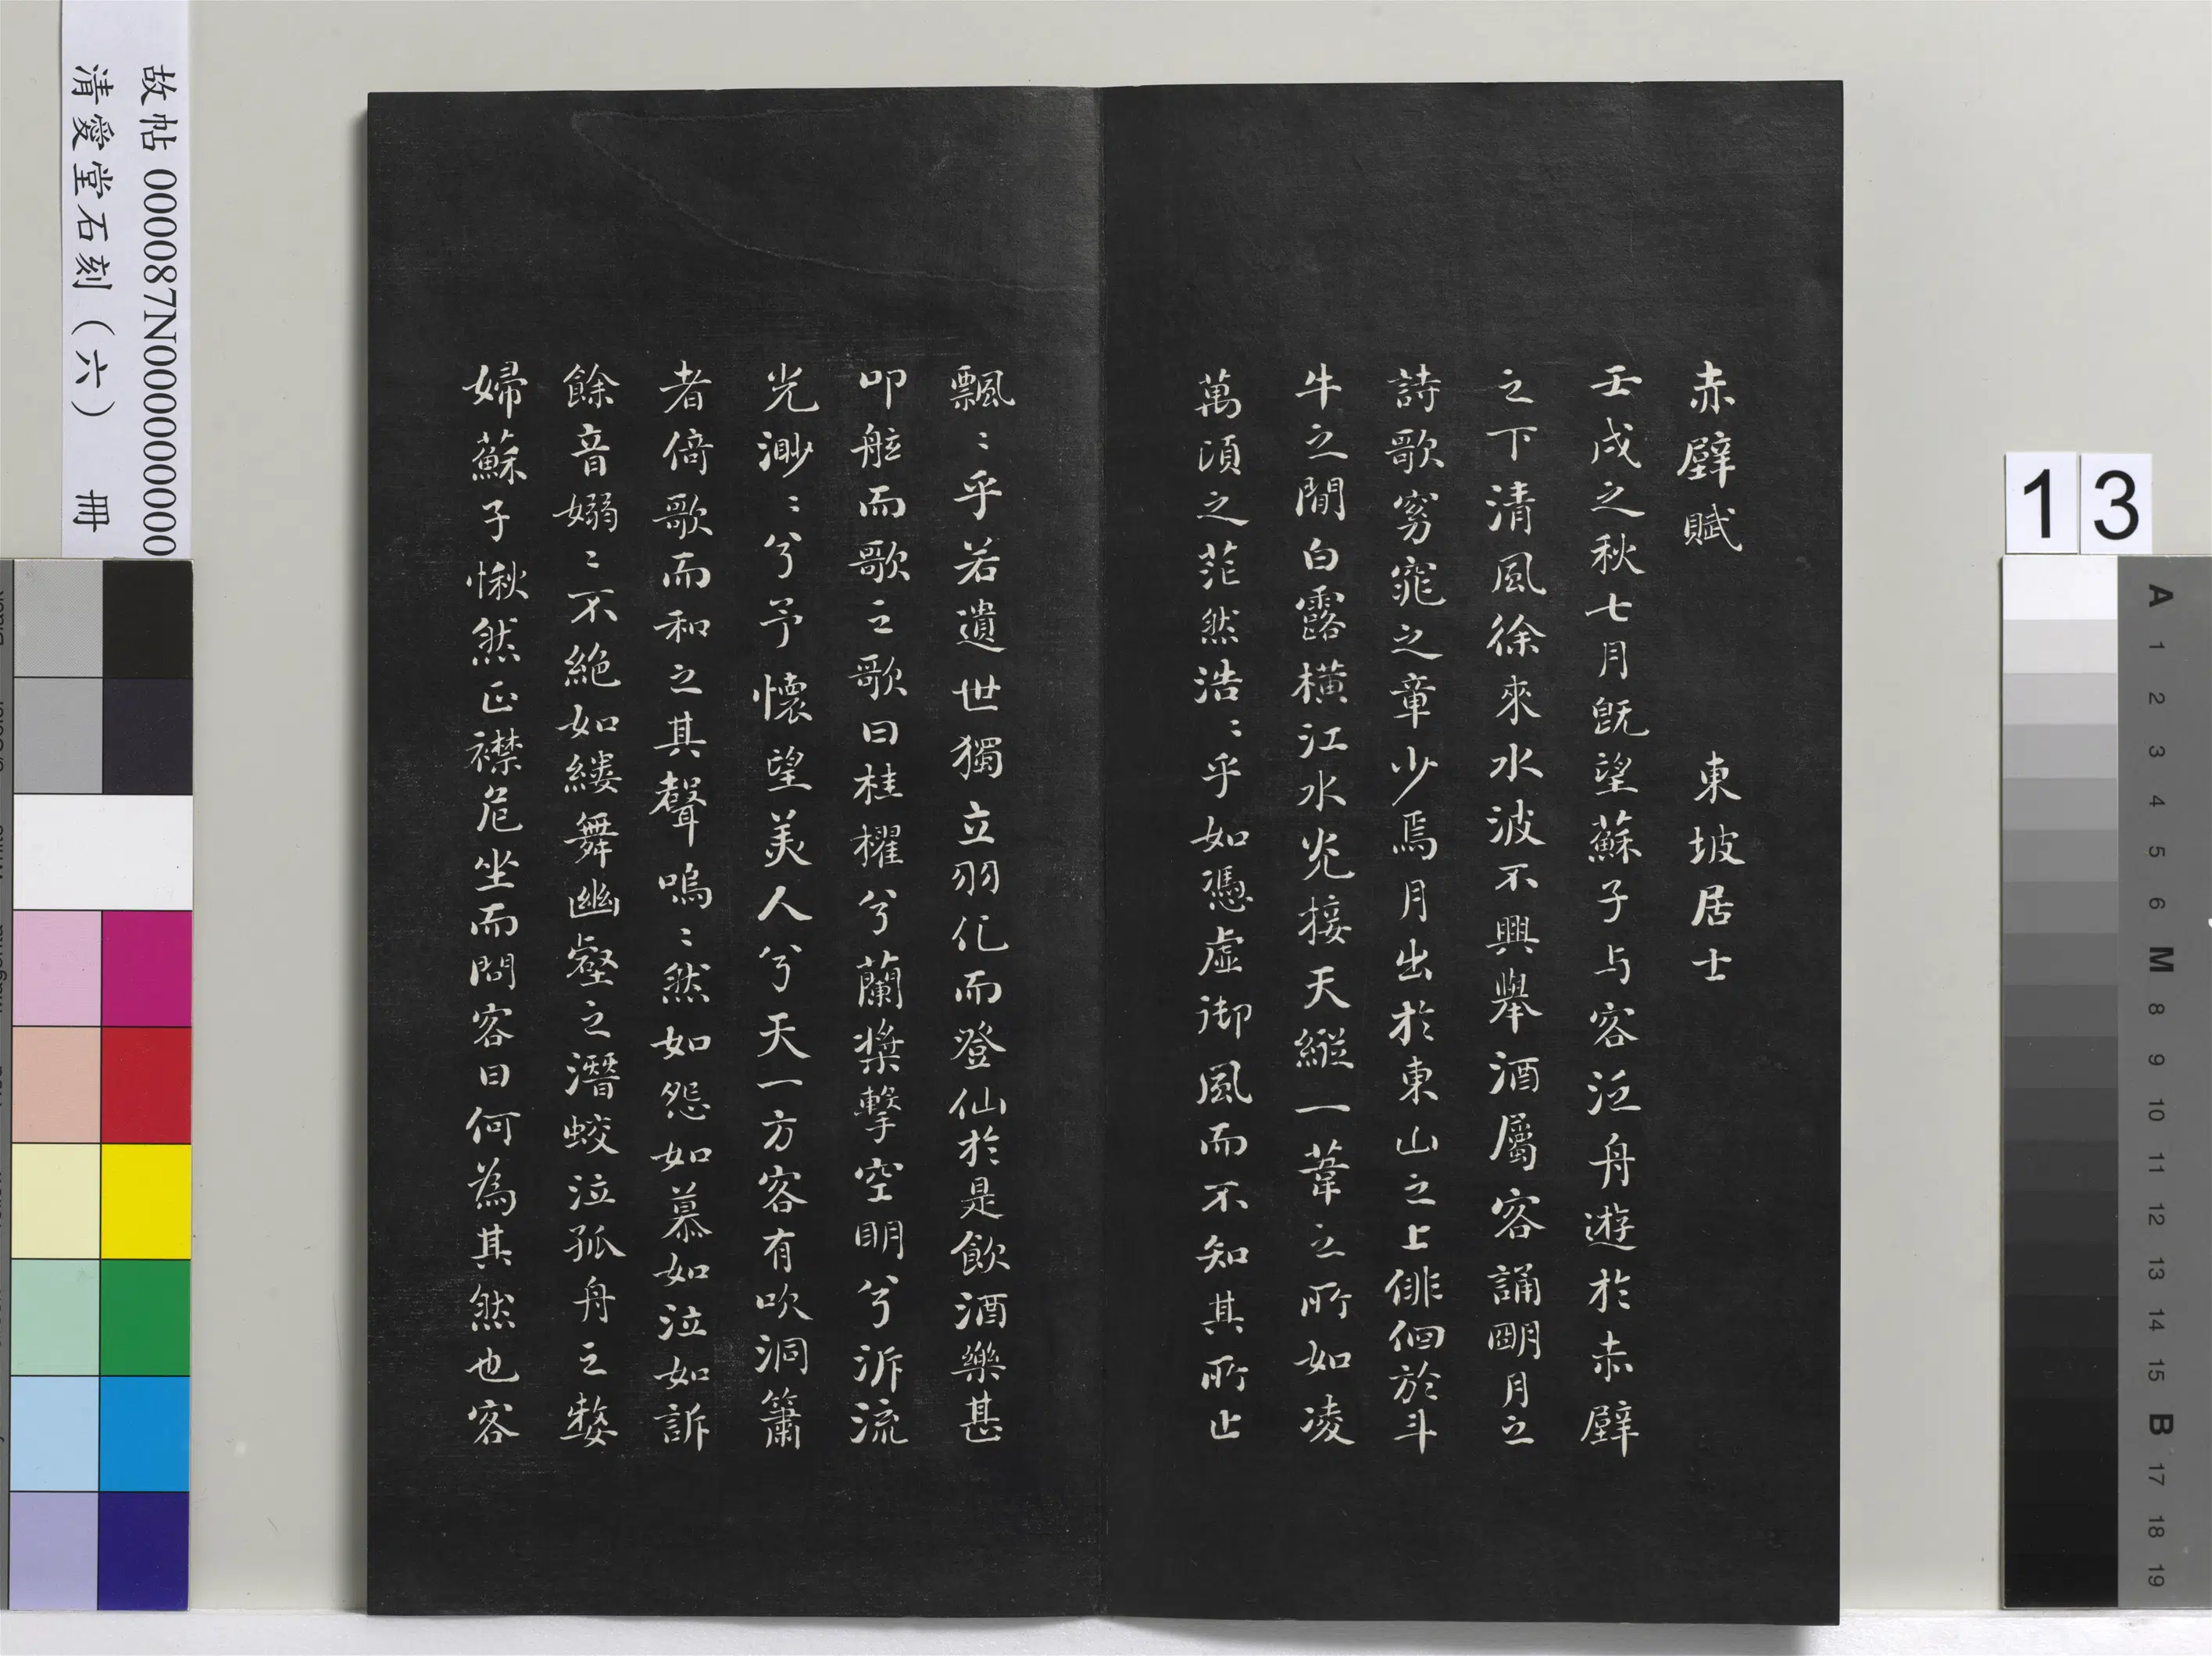 赤壁賦 東坡居士
壬戌之秋七月既望蘇子与客泛舟遊於赤壁
之下清風徐來水波不興舉酒屬客誦朙月之
詩歌窈窕之章少焉月出於東山之上俳佪於斗
牛之閒白露橫江水光接天縱一葦之所如凌
萬頃之茫然浩：乎如憑虛御風而不知其所止
飄：乎若遺世獨立羽化而登仙於是飲酒樂甚
叩舷而歌之歌曰桂櫂兮蘭槳擊空眀兮泝流
光渺：兮予懷望美人兮天一方客有吹洞簫
者倚歌而和之其聲嗚：然如怨如慕如泣如訴
餘音嫋：不絶如縷舞幽壑之潛蛟泣孤舟之嫠
婦蘇子愀然正襟危坐而問客曰何為其然也客
故帖 000087N000000000
清愛堂石刻（六） 冊
13
A
1
2
3
4
5
6
M
8
9
10
11
12
13
14
15
B
17
18
19